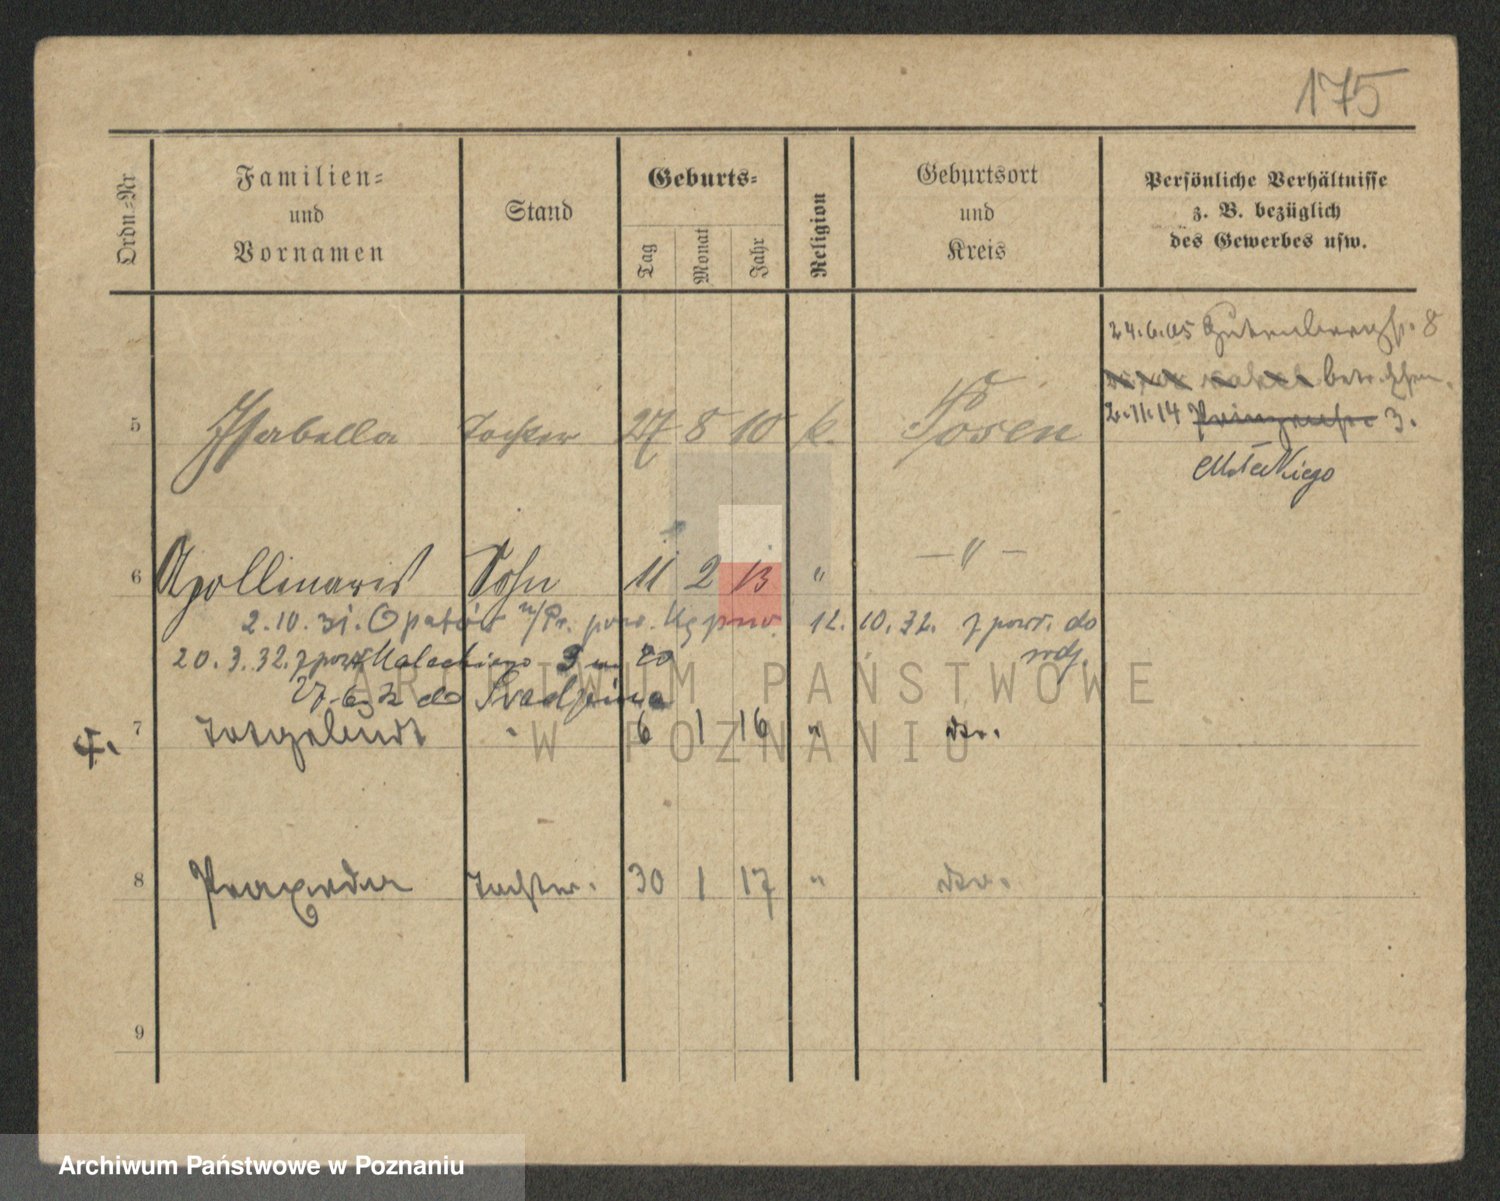 175
Ordn.=Nr.
Familien=
und
Vornamen
Stand
Geburts=
Tag
Monat
Jahr
Religion
Geburtsort
und
Kreis
Persönliche Verhältnisse
z. B. bezüglich
des Gewerbes usw.
24.6.05 Gutenbergstr. 8
5 Isabella Tochter 27 8 10 k. Posen
2.11.14 Prinzenstr. 3.
Małeckiego
6 Apollinaris Sohn 11 2 13 " — " —
2.10.31. Opatów n/Pr. pow. Kępno. 12.10.32. z powr. do
rodz.
20.3.32. z powr. Małeckiego 9 m 20
27.6.32 do Swadzimia
7 Totgeburt 6 1 16 " dto.
8 Praxeda Tochter. 30 1 17 " dto.
9
ARCHIWUM PAŃSTWOWE
W POZNANIU
Archiwum Państwowe w Poznaniu